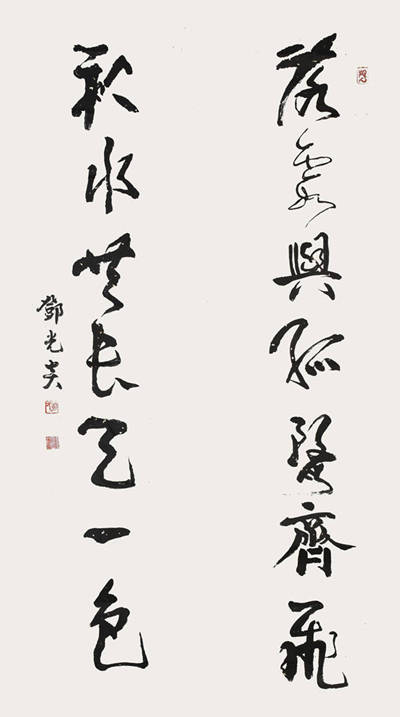 落霞與孤鶩齊飛
秋水共長天一色
鄧光